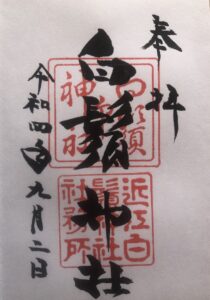 奉拝
白鬚神社
令和四年九月二日
近江白
鬚神社
社務所